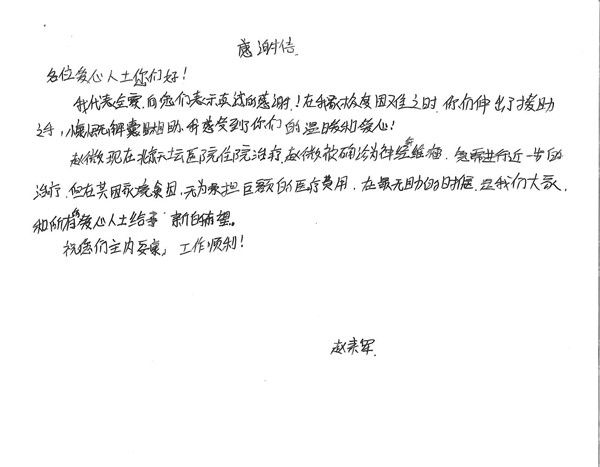 感谢信
各位爱心人士你们好!
我代表全家向您们表示真诚的感谢!在我家极度困难之时,你们伸出了援助
之手,慷慨解囊相助,我感受到了你们的温暖和爱心!
赵微现在北京天坛医院住院治疗,赵微被确诊为神经纤维瘤,急需进行近一步的
治疗,但在其因家境贫困,无力承担巨额的医疗费用,在最无助的时候,是我们大家
和所有爱心人士给予新的希望。
祝您们主内安康,工作顺利!
赵来军